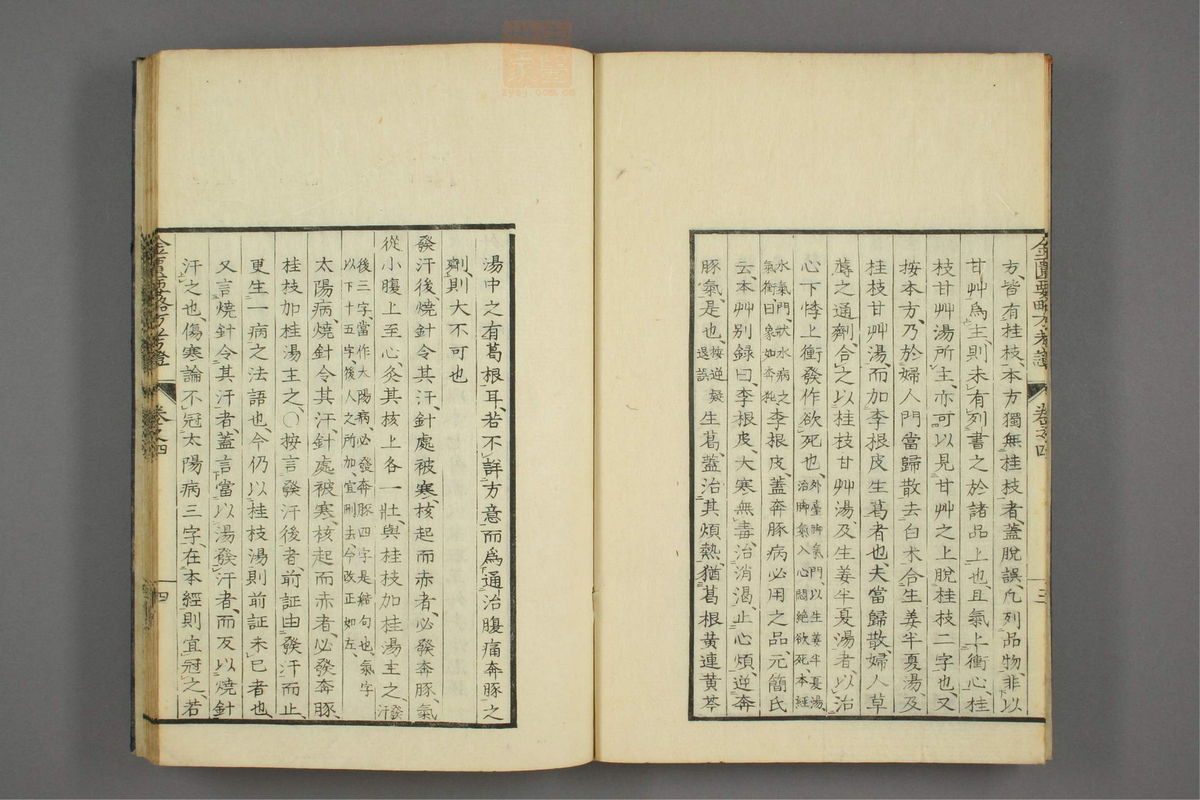 金匱要略方考證 卷之四 三
方、皆有桂枝、本方獨無桂枝者、蓋脫誤、凡列品物、非以
甘艸爲主、則未有列書之於諸品上也、且氣上衝心、桂
枝甘艸湯所主、亦可以見甘艸之上脫桂枝二字也、又
按本方、乃於婦人門當歸散去白朮、合生姜半夏湯、及
桂枝甘艸湯、而加李根皮生葛者也、夫當歸散、婦人草
蓐之通劑、合之以桂枝甘艸湯、及生姜半夏湯者、以治
心下悸上衝發作欲死也、外臺脚氣門、以生姜半夏湯、治脚氣入心悶絕欲死、本經
水氣門、狀水病之氣衝曰、象如奔豚、李根皮、蓋奔豚病必用之品、元簡氏
云、本艸別録曰、李根皮、大寒無毒、治消渴、止心煩、逆奔
豚氣、是也、按逆疑退誤 生葛、蓋治其煩熱、猶葛根黄連黄芩
湯中之有葛根耳、若不詳方意而爲通治腹痛奔豚之
劑、則大不可也
發汗後、燒針令其汗、針處被寒、核起而赤者、必發奔豚、氣
從小腹上至心、灸其核上各一壯、與桂枝加桂湯主之、發汗
後三字、當作太陽病、必發奔豚四字是結句也、氣字以下十五字、後人之所加、宜刪去、今改正如左、
太陽病、燒針令其汗、針處被寒、核起而赤者、必發奔豚、
桂枝加桂湯主之、○按言發汗後者、前証由發汗而止、
更生一病之法語也、今仍以桂枝湯則前証未已者也、
又言燒針令其汗者、蓋言當以湯發汗者、而反以燒針
汗之也、傷寒論不冠太陽病三字、在本經則宜冠之、若
金匱要略方考證 卷之四 四